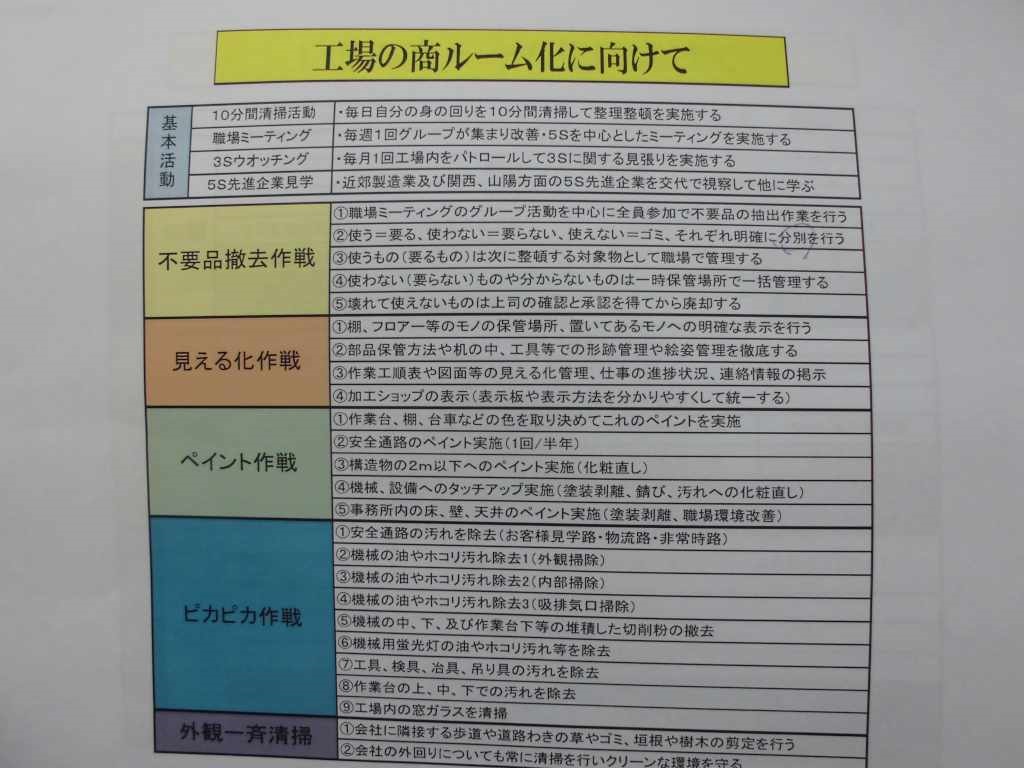 工場の商ルーム化に向けて
基本活動
10分間清掃活動 ・毎日自分の身の回りを10分間清掃して整理整頓を実施する
職場ミーティング ・毎週1回グループが集まり改善・5Sを中心としたミーティングを実施する
3Sウオッチング ・毎月1回工場内をパトロールして3Sに関する見張りを実施する
5S先進企業見学 ・近郊製造業及び関西、山陽方面の5S先進企業を交代で視察して他に学ぶ
不要品撤去作戦
①職場ミーティングのグループ活動を中心に全員参加で不要品の抽出作業を行う
②使う＝要る、使わない＝要らない、使えない＝ゴミ、それぞれ明確に分別を行う
③使うもの(要るもの)は次に整頓する対象物として職場で管理する
④使わない(要らない)ものや分からないものは一時保管場所で一括管理する
⑤壊れて使えないものは上司の確認と承認を得てから廃却する
見える化作戦
①棚、フロアー等のモノの保管場所、置いてあるモノへの明確な表示を行う
②部品保管方法や机の中、工具等での形跡管理や絵姿管理を徹底する
③作業工順表や図面等の見える化管理、仕事の進捗状況、連絡情報の掲示
④加工ショップの表示(表示板や表示方法を分かりやすくして統一する)
ペイント作戦
①作業台、棚、台車などの色を取り決めてこれのペイントを実施
②安全通路のペイント実施(1回/半年)
③構造物の2m以下へのペイント実施(化粧直し)
④機械、設備へのタッチアップ実施(塗装剥離、錆び、汚れへの化粧直し)
⑤事務所内の床、壁、天井のペイント実施(塗装剥離、職場環境改善)
ピカピカ作戦
①安全通路の汚れを除去(お客様見学路・物流路・非常時路)
②機械の油やホコリ汚れ除去1(外観掃除)
③機械の油やホコリ汚れ除去2(内部掃除)
④機械の油やホコリ汚れ除去3(吸排気口掃除)
⑤機械の中、下、及び作業台下等の堆積した切削粉の撤去
⑥機械用蛍光灯の油やホコリ汚れ等を除去
⑦工具、検具、冶具、吊り具の汚れを除去
⑧作業台の上、中、下での汚れを除去
⑨工場内の窓ガラスを清掃
外観一斉清掃
①会社に隣接する歩道や道路わきの草やゴミ、垣根や樹木の剪定を行う
②会社の外回りについても常に清掃を行いクリーンな環境を守る